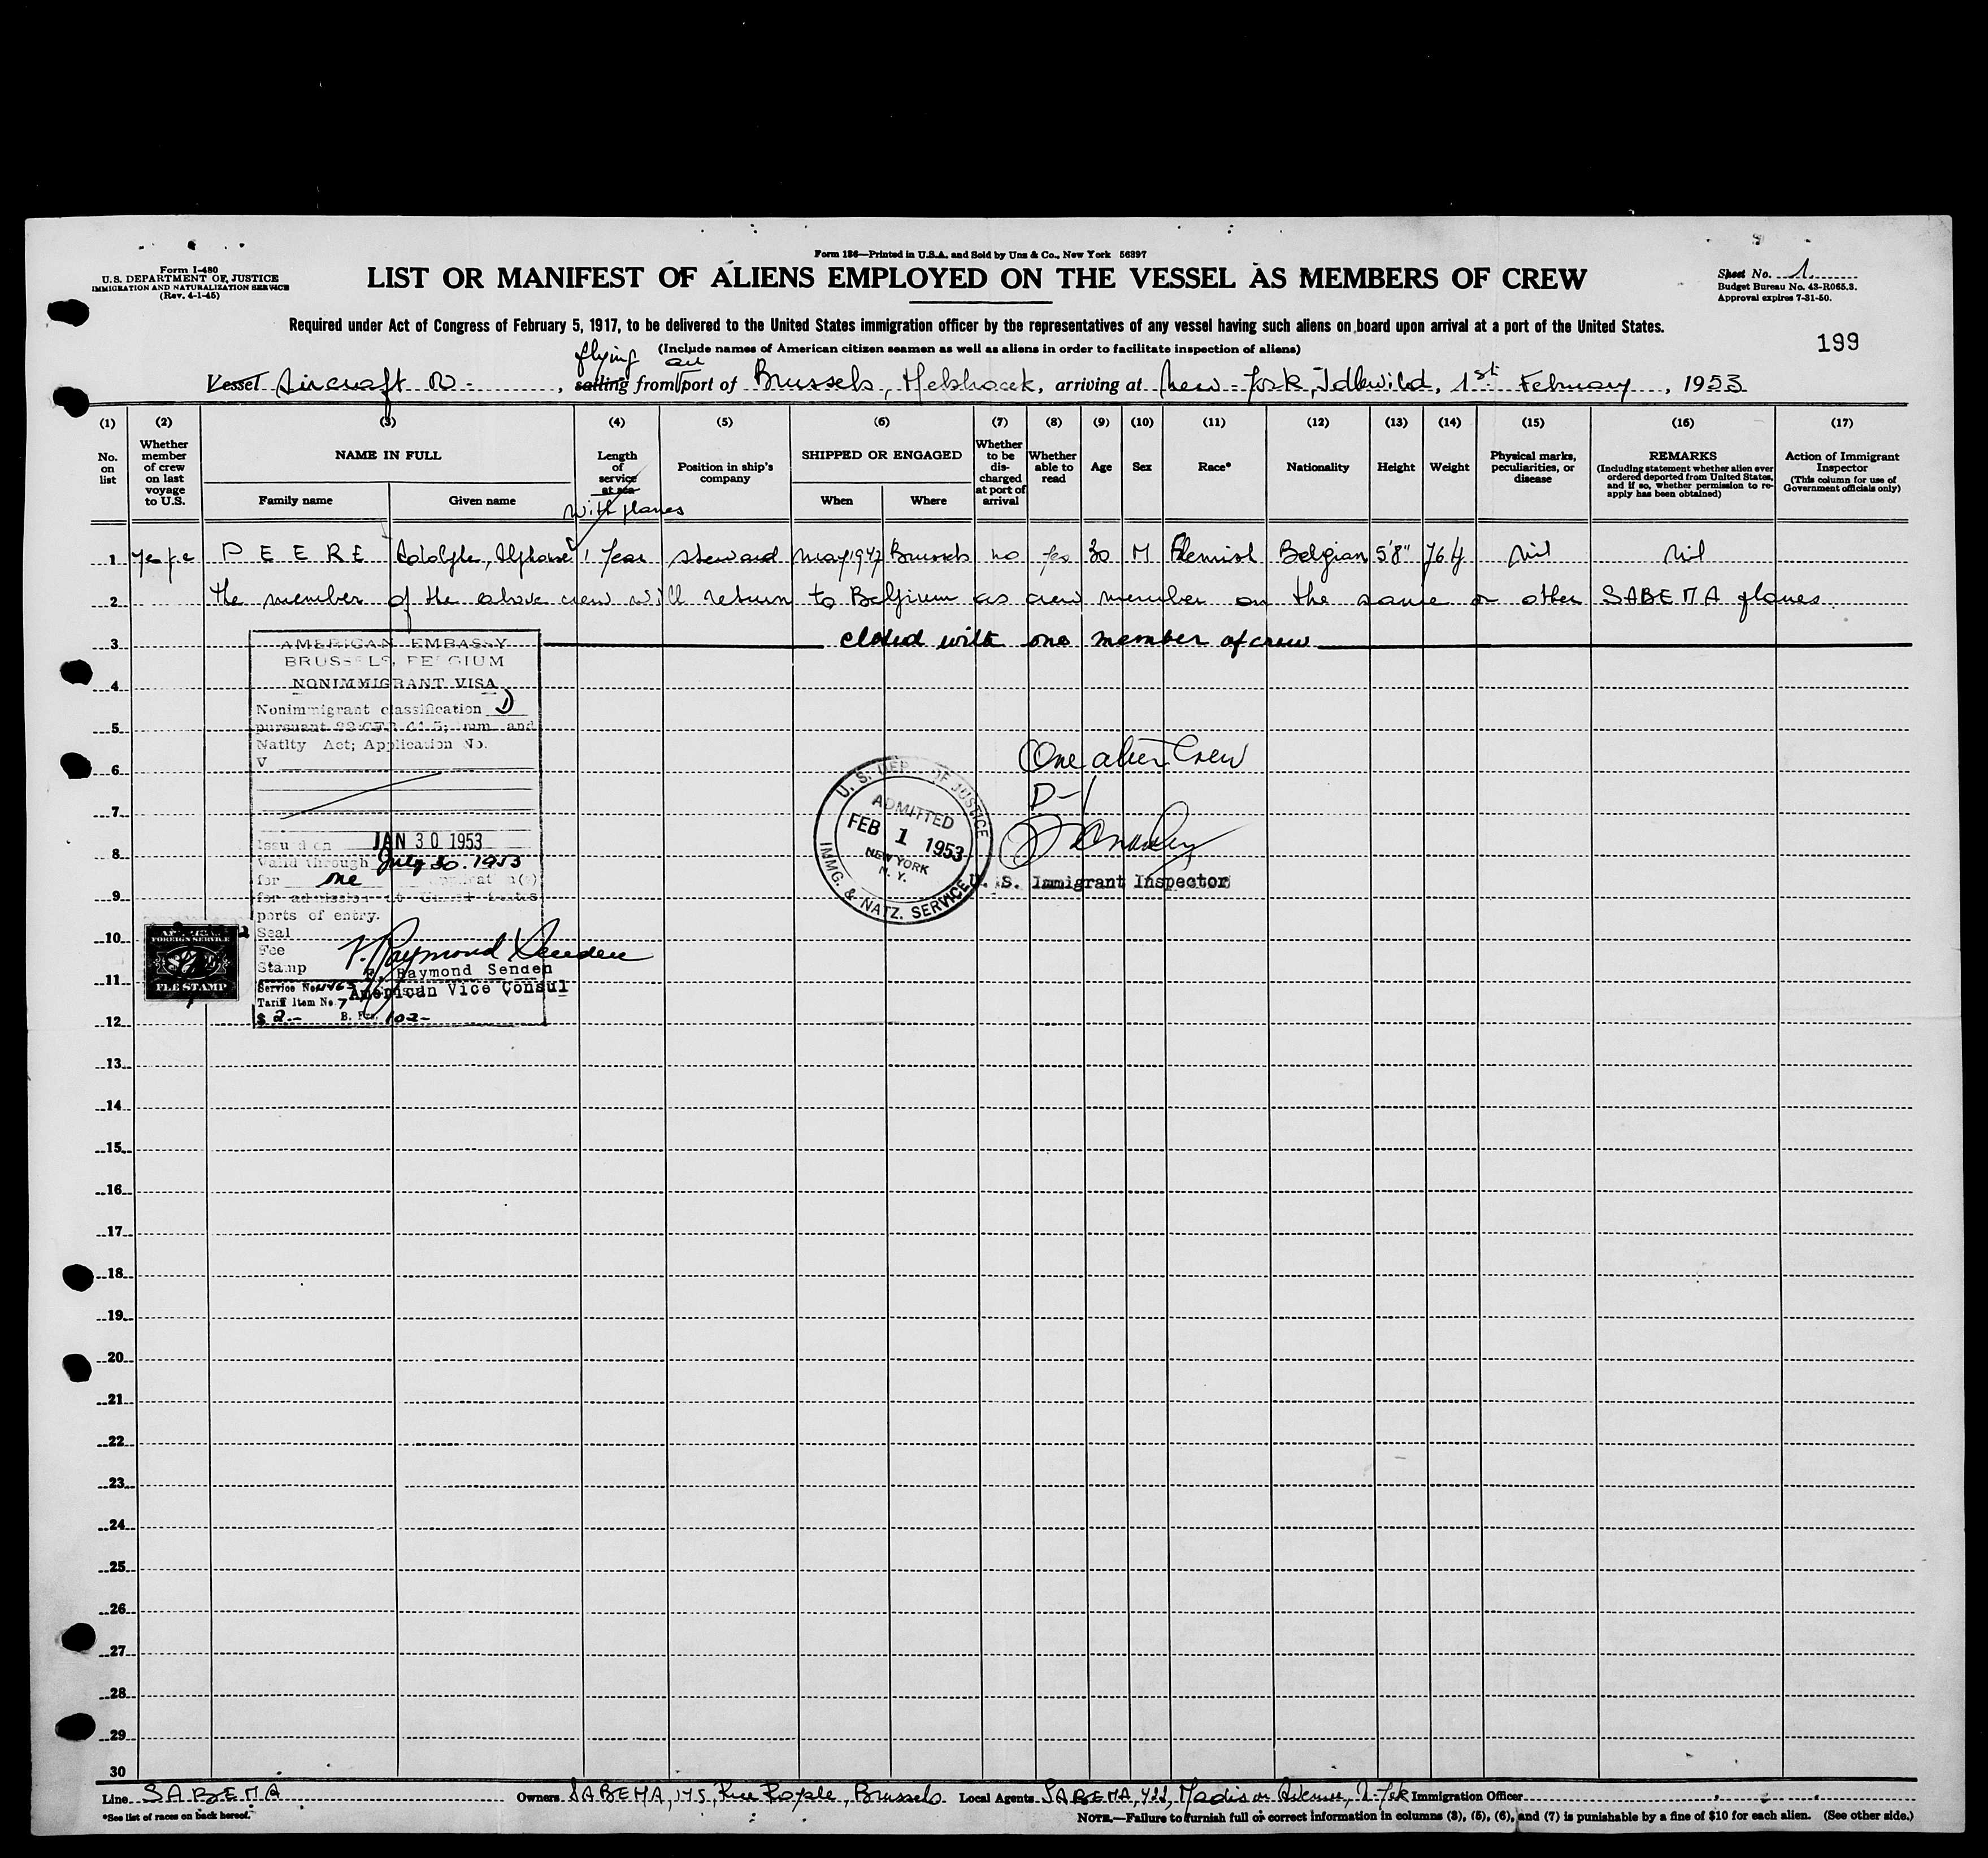 Form 126—Printed in U.S.A. and Sold by Unz & Co., New York 56397
Form I-480
U.S. DEPARTMENT OF JUSTICE
IMMIGRATION AND NATURALIZATION SERVICE
(Rev. 4-1-45)
LIST OR MANIFEST OF ALIENS EMPLOYED ON THE VESSEL AS MEMBERS OF CREW
Sheet No. 1
Budget Bureau No. 43-R065.3.
Approval expires 7-31-50.
Required under Act of Congress of February 5, 1917, to be delivered to the United States immigration officer by the representatives of any vessel having such aliens on board upon arrival at a port of the United States.
199
(Include names of American citizen seamen as well as aliens in order to facilitate inspection of aliens)
flying air
Vessel Aircraft, sailing from port of Brussels, arriving at New-York, Idlewild, 1st February, 1953
(1) (2) (3) (4) (5) (6) (7) (8) (9) (10) (11) (12) (13) (14) (15) (16) (17)
No. on list
Whether member of crew on last voyage to U.S.
NAME IN FULL
Family name
Given name
Length of service at sea
with planes
Position in ship's company
SHIPPED OR ENGAGED
When
Where
Whether to be discharged at port of arrival
Whether able to read
Age
Sex
Race*
Nationality
Height
Weight
Physical marks, peculiarities, or disease
REMARKS
(Including statement whether alien ever ordered deported from United States, and if so, whether permission to reapply has been obtained)
Action of Immigrant Inspector
(This column for use of Government officials only)
1 PEERE 1 Year steward may 1947 Brussels no yes 30 M Flemish Belgian 5'8" 164 Nil Nil
2 the member of the above crew will return to Belgium as crew member on the same or other SABENA planes
3 closed with one member of crew
AMERICAN EMBASSY
BRUSSELS, BELGIUM
NONIMMIGRANT VISA
4
Nonimmigrant classification D
5
pursuant 22 CFR 41.5; Imm. and
Natlty Act; Application No.
V
6
7
8
9
Issued on JAN 30 1953
Valid through July 30. 1953
for one application(s)
for admission at United States
ports of entry.
Seal
Fee
Stamp
V. Raymond Senden
Raymond Senden
American Vice Consul
Service No.
Tariff Item No. 7
$ 2.- B. Frs. 102-
FOREIGN SERVICE
FEE STAMP
One alien Crew
D-1
U. S. DEP. OF JUSTICE
ADMITTED
FEB 1 1953
NEW YORK
N. Y.
IMMG. & NATZ. SERVICE
U. S. Immigrant Inspector
10
11
12
13
14
15
16
17
18
19
20
21
22
23
24
25
26
27
28
29
30
Line SABENA Owners SABENA, 145, Rue Royale, Brussels Local Agents SABENA, Madison Avenue, N-York Immigration Officer
*See list of races on back hereof.
NOTE.—Failure to furnish full or correct information in columns (3), (5), (6), and (7) is punishable by a fine of $10 for each alien. (See other side.)